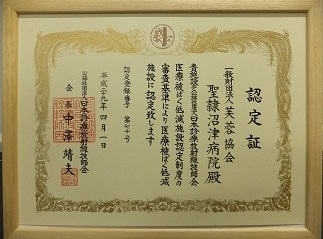 認定証
一般財団法人芙蓉協会
聖隷沼津病院殿
貴施設は公益社団法人日本診療放射線技師会
医療被ばく低減施設認定制度の
審査基準により医療被ばく低減
施設に認定致します
認定登録番号 第七十号
平成二十九年四月一日
公益社団法人日本診療放射線技師会
会長 中澤靖夫